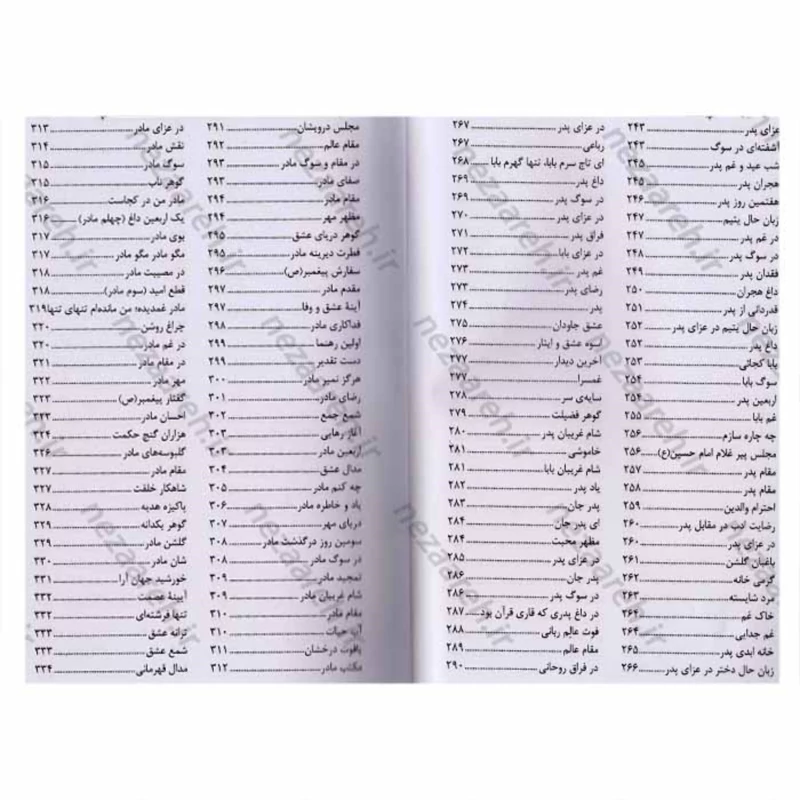 عزای پدر ........ ۲۴۳
آشفته‌ای در سوگ ........ ۲۴۳
شب عید و غم پدر ........ ۲۴۵
هجران پدر ........ ۲۴۵
هفتمین روز پدر ........ ۲۴۶
زبان حال یتیم ........ ۲۴۷
در غم پدر ........ ۲۴۷
در سوگ پدر ........ ۲۴۸
فقدان پدر ........ ۲۴۹
داغ هجران ........ ۲۵۰
قدردانی از پدر ........ ۲۵۱
زبان حال یتیم در عزای پدر ........ ۲۵۲
داغ پدر ........ ۲۵۲
بابا کجائی ........ ۲۵۳
سوگ بابا ........ ۲۵۴
اربعین پدر ........ ۲۵۴
غم بابا ........ ۲۵۵
چه چاره سازم ........ ۲۵۶
مجلس پیر غلام امام حسین(ع) ........ ۲۵۶
مقام پدر ........ ۲۵۷
مقام پدر ........ ۲۵۸
احترام والدین ........ ۲۵۹
رضایت ادب در مقابل پدر ........ ۲۶۰
در عزای پدر ........ ۲۶۰
باغبان گلشن ........ ۲۶۱
گرمی خانه ........ ۲۶۲
مرد شایسته ........ ۲۶۳
خاک غم ........ ۲۶۴
غم جدایی ........ ۲۶۴
خانه ابدی پدر ........ ۲۶۵
زبان حال دختر در عزای پدر ........ ۲۶۶
در عزای پدر ........ ۲۶۷
رباعی ........ ۲۶۷
ای تاج سرم بابا، تنها گهرم بابا ........ ۲۶۸
داغ پدر ........ ۲۶۹
در سوگ پدر ........ ۲۶۹
در عزای پدر ........ ۲۷۰
فراق پدر ........ ۲۷۱
در عزای بابا ........ ۲۷۲
غم پدر ........ ۲۷۳
رضای پدر ........ ۲۷۳
پدر ........ ۲۷۴
عشق جاودان ........ ۲۷۵
اسوه عشق و ایثار ........ ۲۷۶
آخرین دیدار ........ ۲۷۷
غمسرا ........ ۲۷۷
سایه‌ی سر ........ ۲۷۸
گوهر فضیلت ........ ۲۷۹
شام غریبان پدر ........ ۲۸۰
خاموشی ........ ۲۸۱
شام غریبان بابا ........ ۲۸۱
یاد پدر ........ ۲۸۲
پدر جان ........ ۲۸۳
ای پدر جان ........ ۲۸۴
مظهر محبت ........ ۲۸۴
در عزای پدر ........ ۲۸۵
پدر جان ........ ۲۸۶
در سوگ پدر ........ ۲۸۶
در داغ پدری که قاری قرآن بود ........ ۲۸۷
فوت عالم ربانی ........ ۲۸۸
مقام عالم ........ ۲۸۹
در فراق روحانی ........ ۲۹۰
مجلس درویشان ........ ۲۹۱
مقام عالم ........ ۲۹۲
در مقام و سوگ مادر ........ ۲۹۳
صفای مادر ........ ۲۹۳
مقام مادر ........ ۲۹۴
مظهر مهر ........ ۲۹۴
گوهر دریای عشق ........ ۲۹۵
فطرت دیرینه مادر ........ ۲۹۵
سفارش پیغمبر(ص) ........ ۲۹۶
مقدم مادر ........ ۲۹۷
آینۀ عشق و وفا ........ ۲۹۷
فداکاری مادر ........ ۲۹۸
اولین رهنما ........ ۲۹۹
دست تقدیر ........ ۲۹۹
هرگز نمیر مادر ........ ۳۰۰
رضای مادر ........ ۳۰۱
شمع جمع ........ ۳۰۲
آغاز رهایی ........ ۳۰۳
اربعین مادر ........ ۳۰۳
مدال عشق ........ ۳۰۴
چه کنم مادر ........ ۳۰۵
یاد و خاطره مادر ........ ۳۰۶
دریای مهر ........ ۳۰۷
سومین روز درگذشت مادر ........ ۳۰۸
در سوگ مادر ........ ۳۰۸
تمجید مادر ........ ۳۰۹
شام غریبان مادر ........ ۳۰۹
مقام مادر ........ ۳۱۰
آب حیات ........ ۳۱۰
یاقوت درخشان ........ ۳۱۱
مکتب مادر ........ ۳۱۲
در عزای مادر ........ ۳۱۳
نقش مادر ........ ۳۱۴
سوگ مادر ........ ۳۱۵
گوهر ناب ........ ۳۱۵
مادر من در کجاست ........ ۳۱۶
یک اربعین داغ (چهلم مادر) ........ ۳۱۶
بوی مادر ........ ۳۱۷
مگو مادر مگو مادر ........ ۳۱۷
در مصیبت مادر ........ ۳۱۸
قطع امید (سوم مادر) ........ ۳۱۸
مادر غمدیده؛ من مانده‌ام تنهای تنها ۳۱۹
چراغ روشن ........ ۳۲۰
در غم مادر ........ ۳۲۰
در مقام مادر ........ ۳۲۱
مهر مادر ........ ۳۲۲
گفتار پیغمبر(ص) ........ ۳۲۳
احسان مادر ........ ۳۲۳
هزاران گنج حکمت ........ ۳۲۴
گلبوسه‌های مادر ........ ۳۲۶
مقام مادر ........ ۳۲۷
شاهکار خلقت ........ ۳۲۷
پاکیزه هدیه ........ ۳۲۸
گوهر یکدانه ........ ۳۲۹
گلشن مادر ........ ۳۲۹
شان مادر ........ ۳۳۰
خورشید جهان آرا ........ ۳۳۱
آیینۀ عصمت ........ ۳۳۲
تنها فرشته‌ای ........ ۳۳۲
ترانه عشق ........ ۳۳۳
شمع عشق ........ ۳۳۳
مدال قهرمانی ........ ۳۳۴
nezaareh.ir